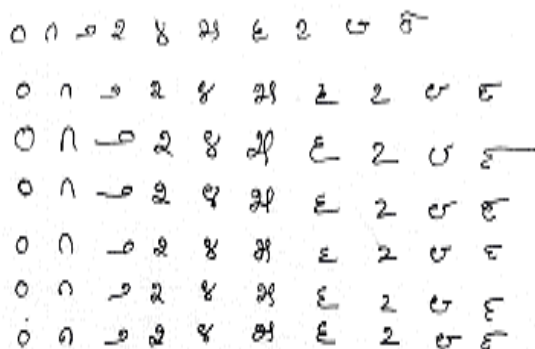 ೦ ೧ ೨ ೩ ೪ ೫ ೬ ೭ ೮ ೯
೦ ೧ ೨ ೩ ೪ ೫ ೬ ೭ ೮ ೯
೦ ೧ ೨ ೩ ೪ ೫ ೬ ೭ ೮ ೯
೦ ೧ ೨ ೩ ೪ ೫ ೬ ೭ ೮ ೯
೦ ೧ ೨ ೩ ೪ ೫ ೬ ೭ ೮ ೯
೦ ೧ ೨ ೩ ೪ ೫ ೬ ೭ ೮ ೯
೦ ೧ ೨ ೩ ೪ ೫ ೬ ೭ ೮ ೯